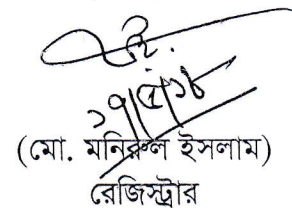 ১৭/৫/১৮
(মো. মনিরুল ইসলাম)
রেজিস্ট্রার